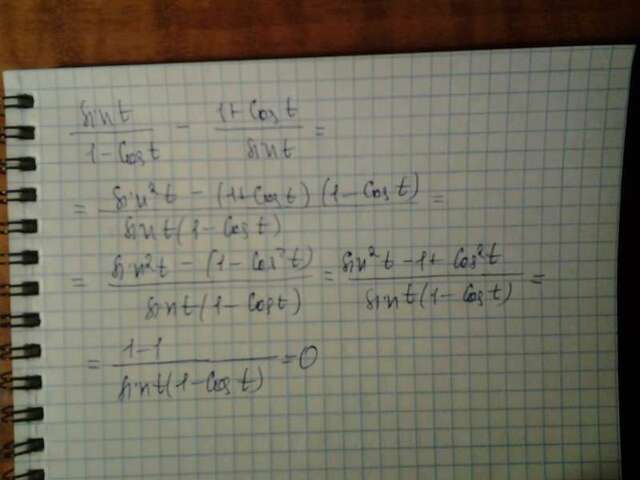 sin t / 1 - Cos t - 1 + Cos t / sin t =
= sin²t - (1 + Cos t)(1 - Cos t) / sin t (1 - Cos t) =
= sin²t - (1 - Cos²t) / sin t (1 - Cos t) = sin²t - 1 + Cos²t / sin t (1 - Cos t) =
= 1 - 1 / sin t (1 - Cos t) = 0